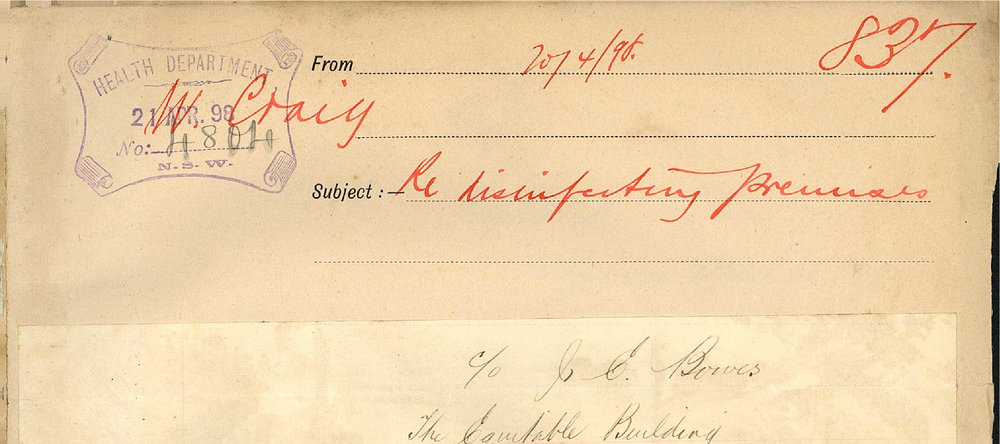 HEALTH DEPARTMENT
21 APR. 98
No: 4804
N.S.W.
From 20/4/98. 837.
W. Craig
Subject:— Re disinfecting premises
c/o J. E. Bowes
The Equitable Building